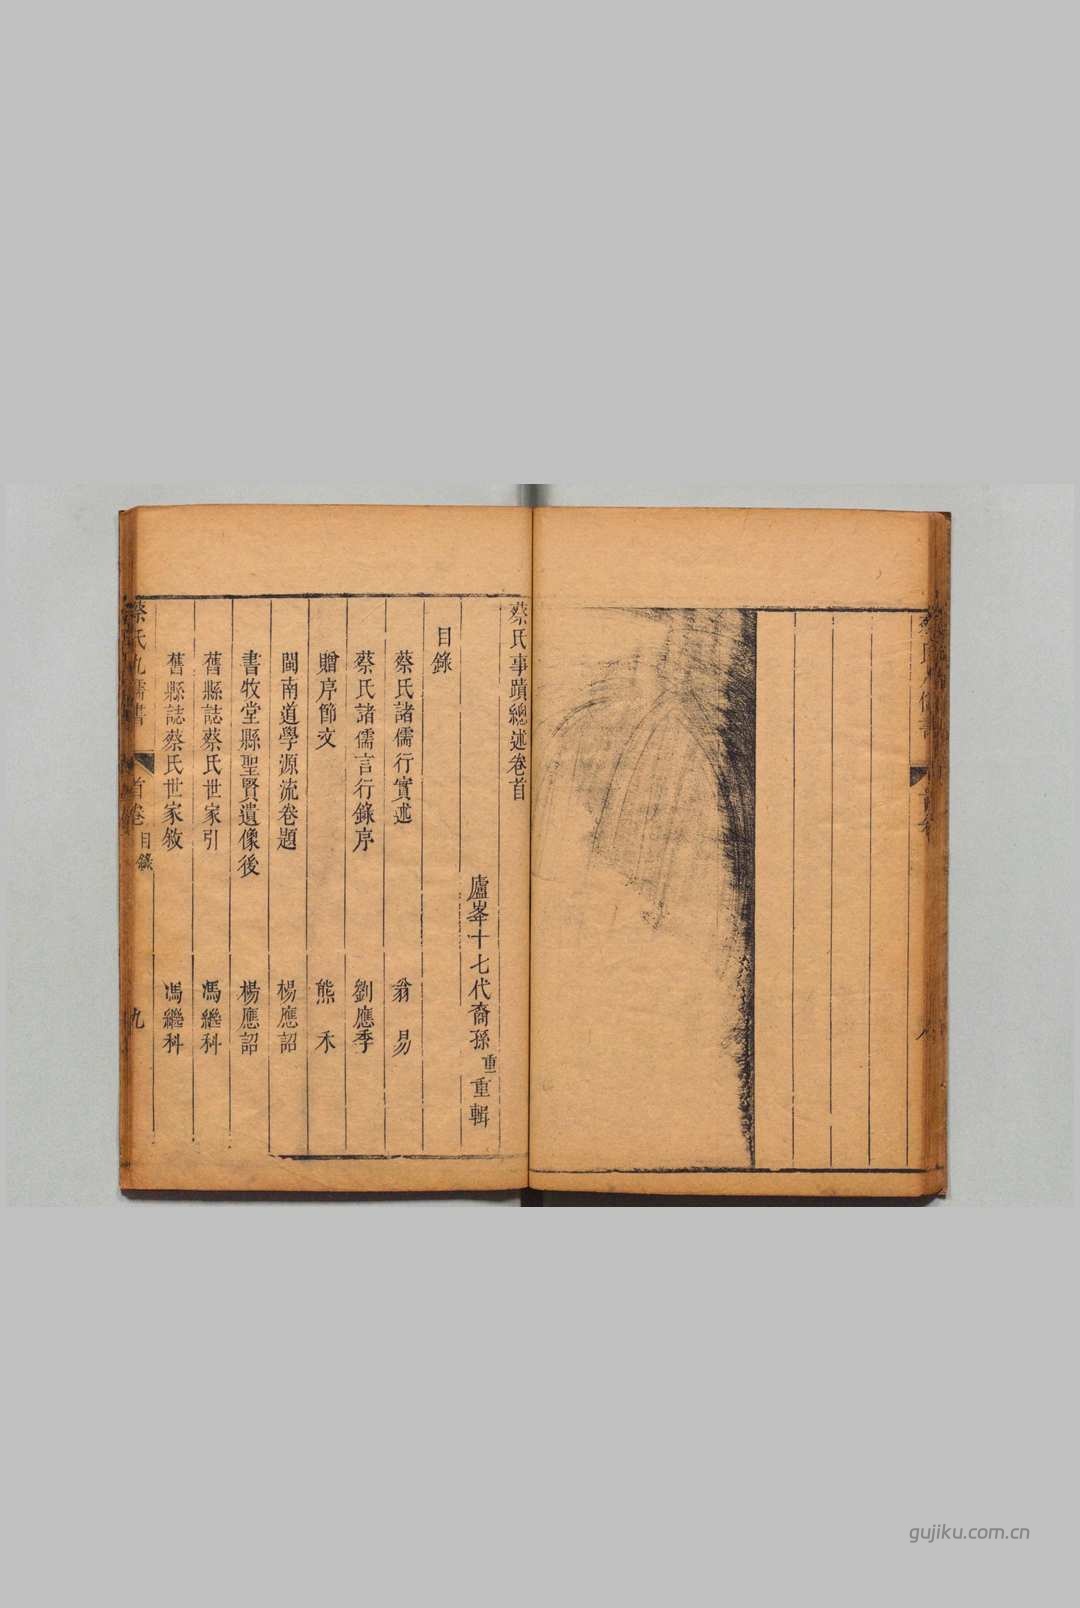 蔡氏事蹟總述卷首
廬峯十七代裔孫重重輯
目錄
蔡氏諸儒行實述 翁易
蔡氏諸儒言行錄序 劉應季
贈序節文 熊禾
閩南道學源流卷題 楊應詔
書牧堂縣聖賢遺像後 楊應詔
舊縣誌蔡氏世家引 馮繼科
舊縣誌蔡氏世家敘 馮繼科
蔡氏九儒書 首卷 目錄 九
gujiku.com.cn